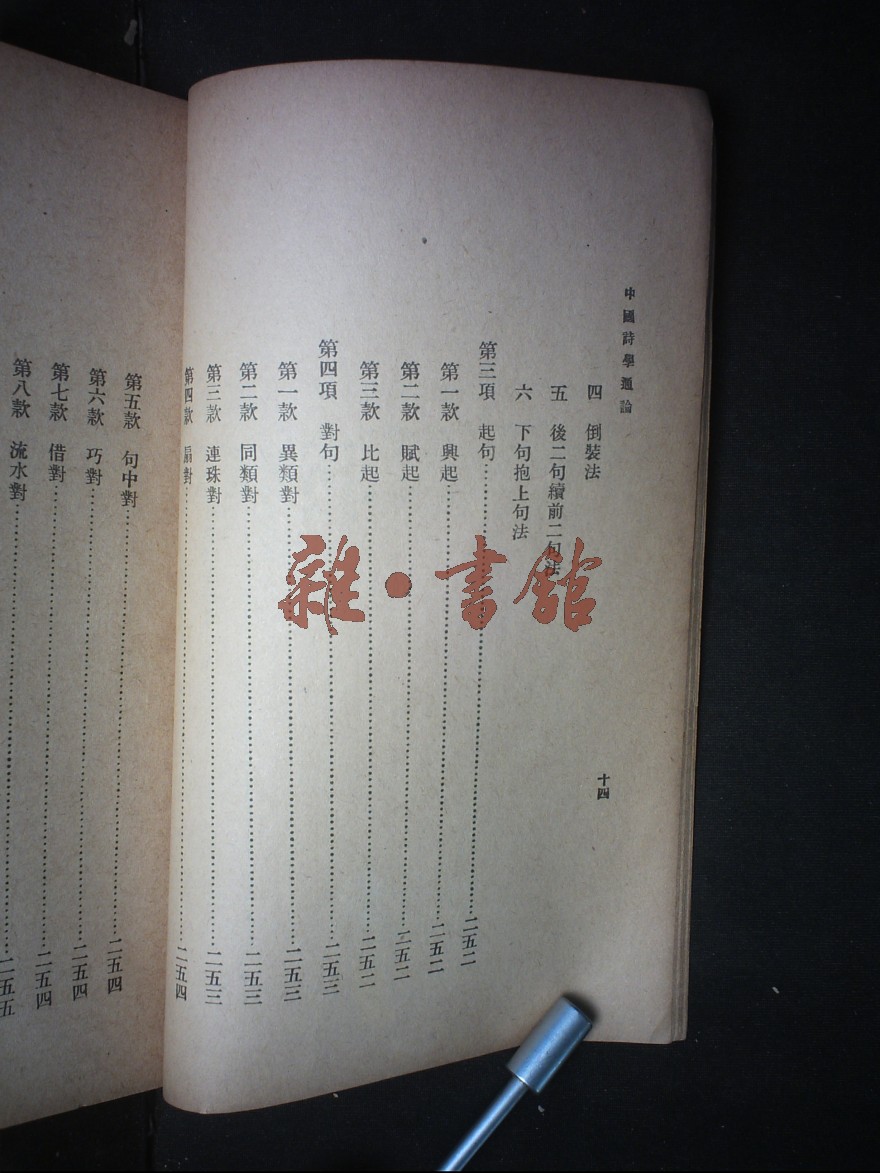 中國詩學通論
四　倒裝法
五　後二句續前二句法
六　下句抱上句法
十四
第三項　起句……二五二
第一款　興起……二五二
第二款　賦起……二五二
第三款　比起……二五二
第四項　對句……二五三
第一款　異類對……二五三
第二款　同類對……二五三
第三款　連珠對……二五三
第四款　扇對……二五四
第五款　句中對……二五四
第六款　巧對……二五四
第七款　借對……二五四
第八款　流水對……二五五
雜·書館